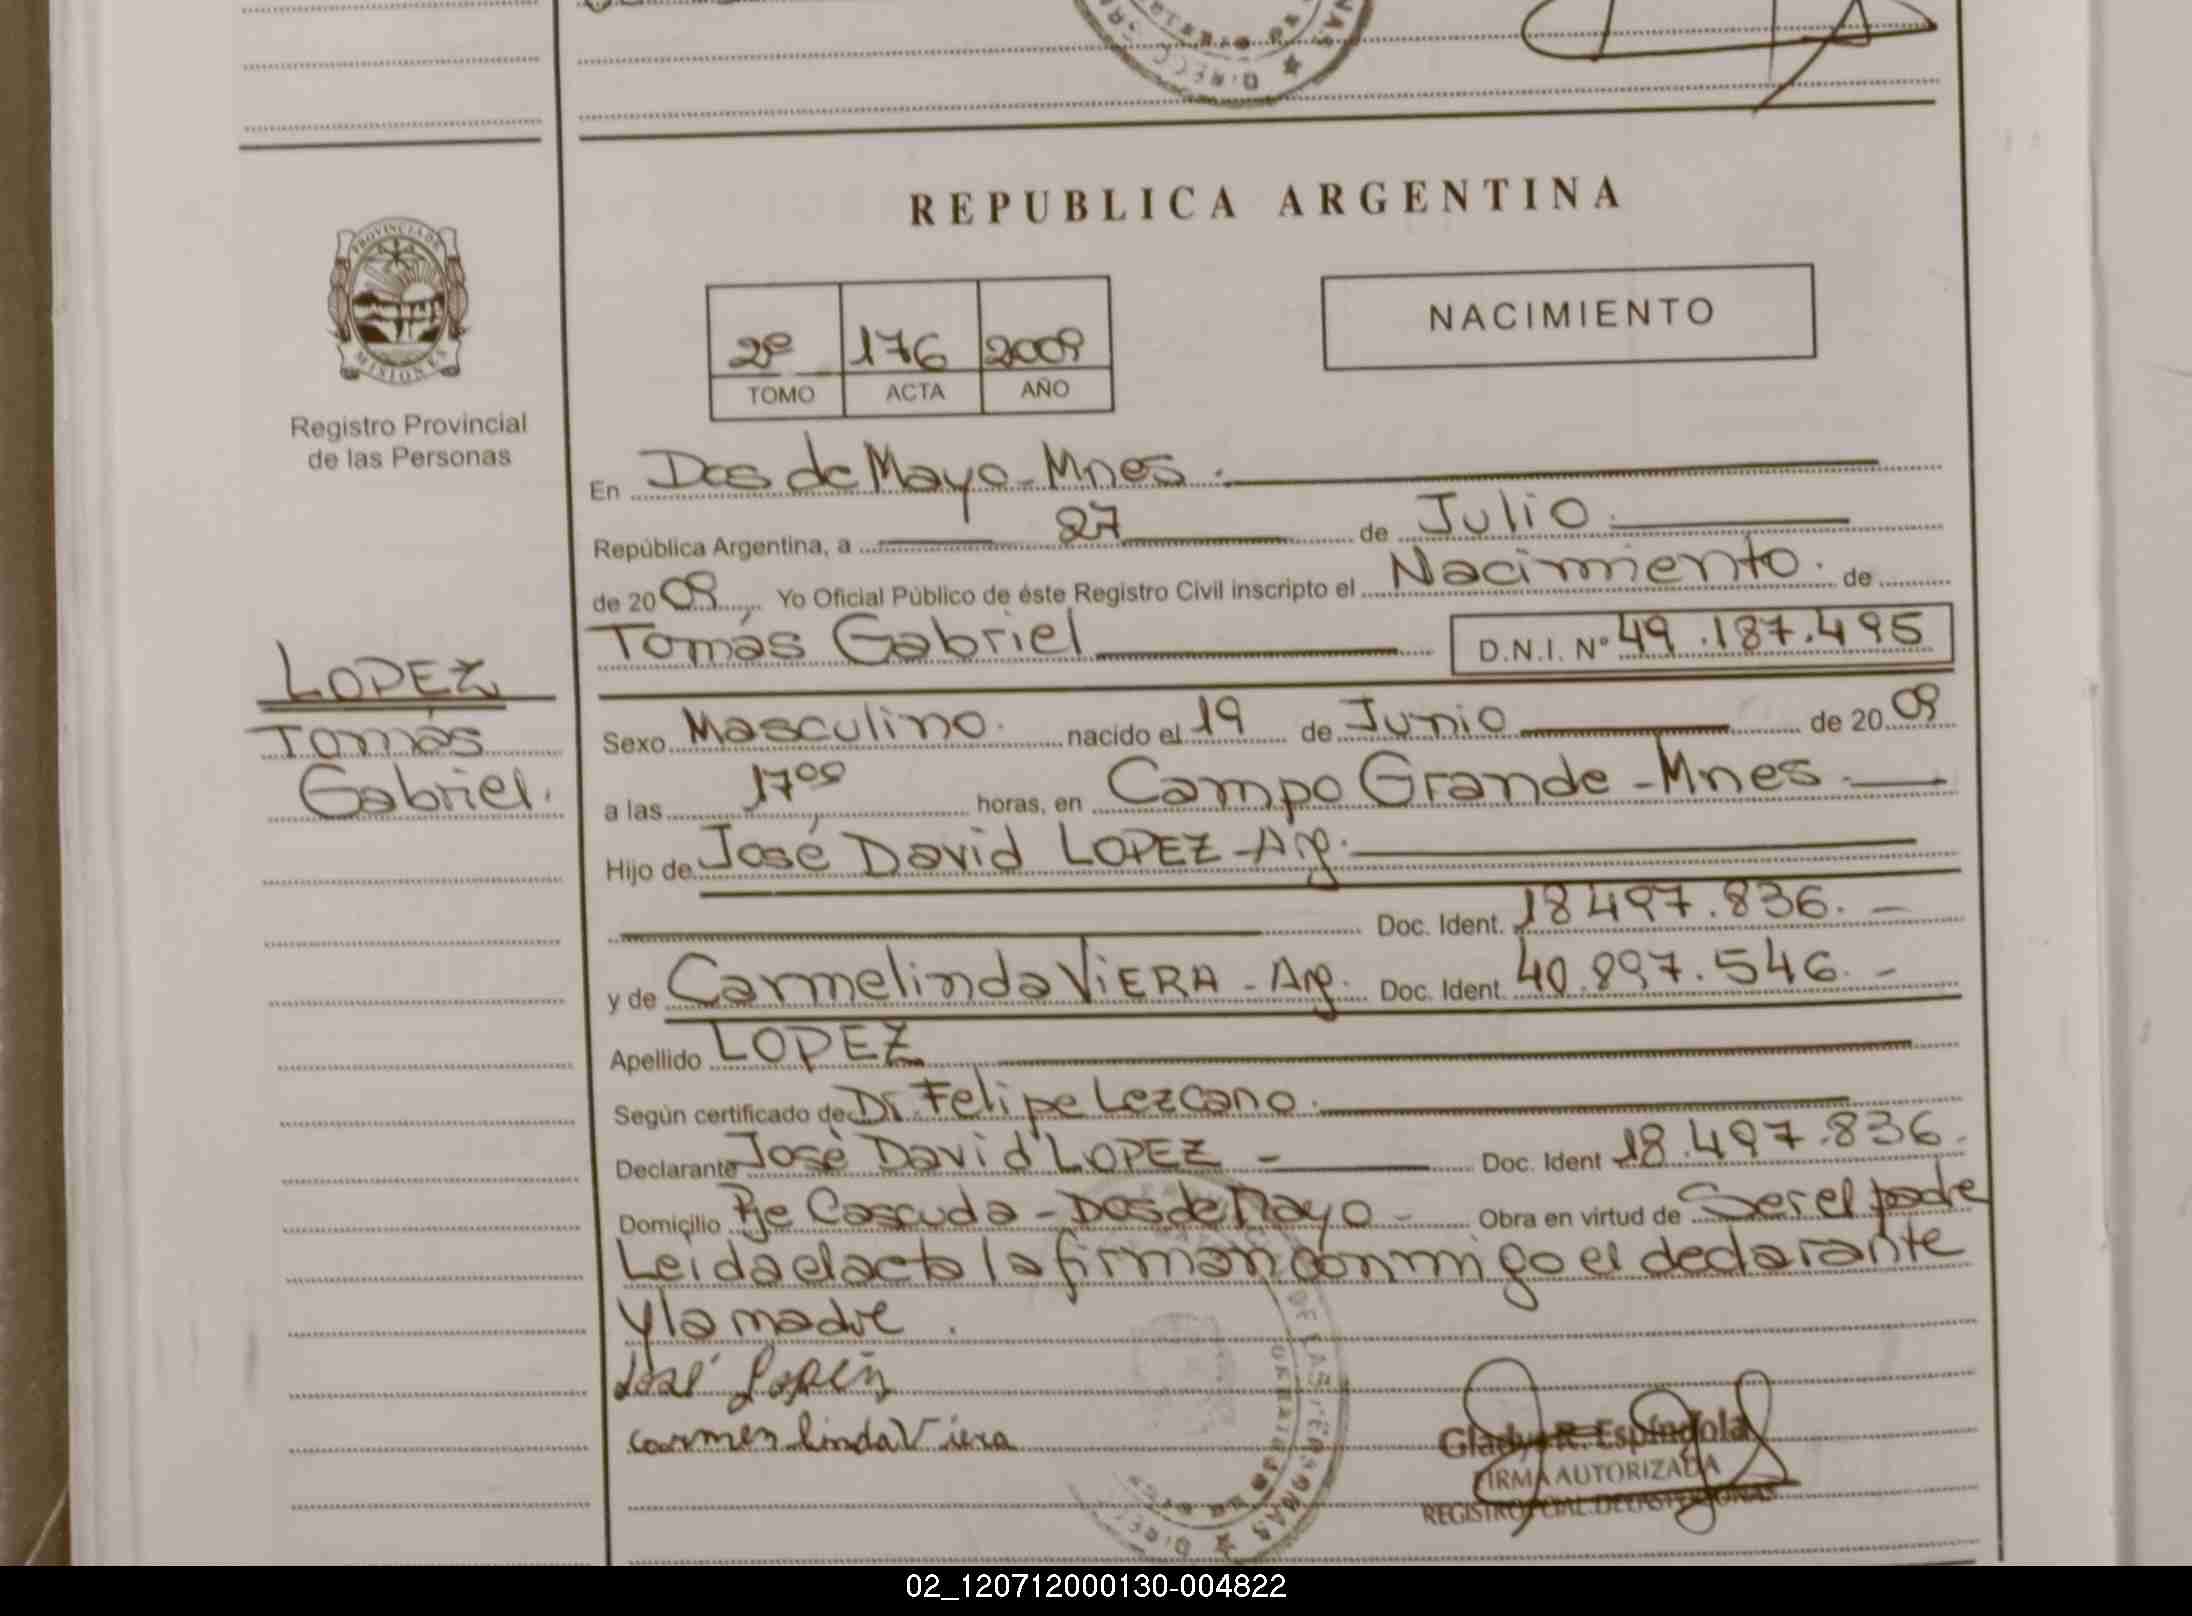 REPUBLICA ARGENTINA
PROVINCIA DE
MISIONES
Registro Provincial
de las Personas
2º 176 2009
TOMO ACTA AÑO
NACIMIENTO
En Dos de Mayo - Mnes.
República Argentina, a 27 de Julio.
de 2009, Yo Oficial Público de éste Registro Civil inscripto el Nacimiento. de
Tomás Gabriel D.N.I. Nº 49.187.495
LOPEZ
Tomás
Gabriel.
Sexo Masculino. nacido el 19 de Junio de 2009
a las 17⁰⁰ horas, en Campo Grande - Mnes.
Hijo de José David LOPEZ - Arg.
Doc. Ident. 18.497.836.
y de Carmelinda VIERA - Arg. Doc. Ident. 40.897.546.
Apellido LOPEZ
Según certificado de Dr. Felipe Lezcano.
Declarante José David LOPEZ - Doc. Ident 18.497.836.
Domicilio Pje Cascuda - Dos de Mayo - Obra en virtud de Ser el padre
Leida el acta la firman conmigo el declarante
y la madre.
José
carmen linda Viera
Gladys R. Espíndola
FIRMA AUTORIZADA
02_120712000130-004822